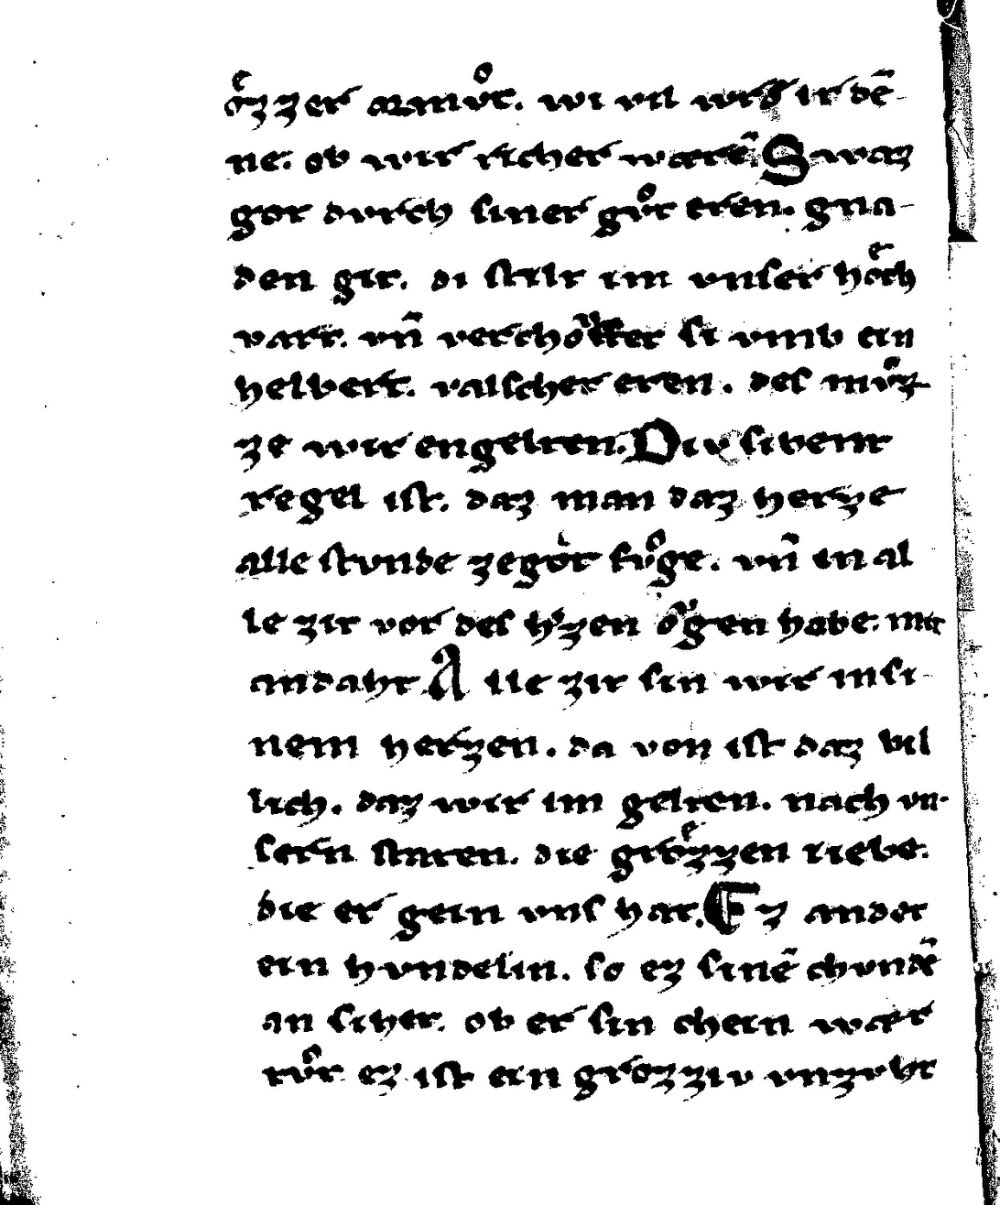 oͤzzer armvͦt. wi vil wrd ir dē
ne. ob wir richer wærē. Swaz
got dvrch siner gvͦt eren. gna
den git. di stilt im vnser hoͤch
vart. vn̄ verchoͮffet si vmb ein
helbert. valscher eren. des mvͦz
ze wir engelten. Div sibent
regel ist. daz man daz herze
alle stvnde ze got fvͦge. vn̄ in al
le zit vor des h'zen oͮgen habe. mit
andaht. Alle zit sin wir in si
nem herzen. da von ist daz bil
lich. daz wir im gelten. nach vn
sern staten. die groͤzzen liebe.
die er gein vns hat. Ez andet
ein hvndelin. so ez sinē chvndē
an sihet. ob er sin chein wær
tvͦt ez ist ein grozziv vnzvht